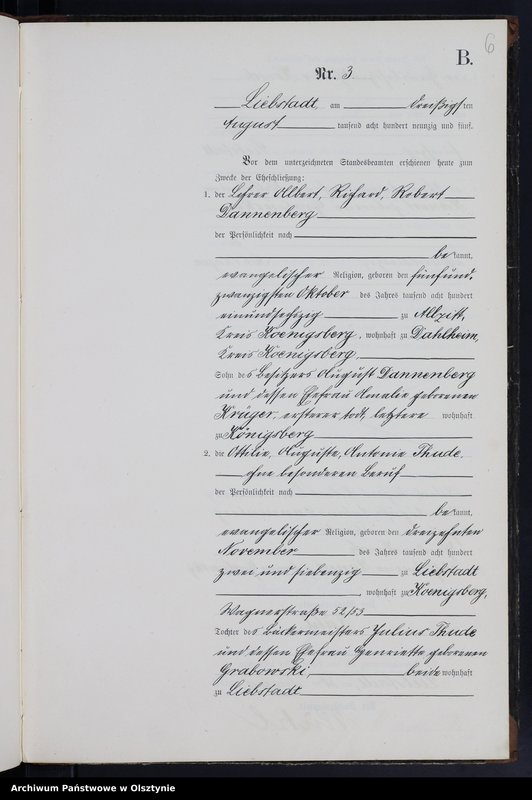 6
B.
Nr. 3.
Liebstadt, am dreißigsten
August tausend acht hundert neunzig und fünf.
Vor dem unterzeichneten Standesbeamten erschienen heute zum
Zwecke der Eheschließung:
1. der Lehrer Albert, Richard, Robert
Dannenberg
der Persönlichkeit nach
bekannt,
evangelischer Religion, geboren den fünfund,
zwanzigsten Oktober des Jahres tausend acht hundert
einundsechszig zu
Kreis Koenigsberg, wohnhaft zu Dahlheim,
Kreis Koenigsberg,
Sohn des Besitzers August Dannenberg
und dessen Ehefrau Amalie geborenen
Krüger, ersterer todt, letztere wohnhaft
zu Königsberg
2. die Ottilie, Auguste, Antonie Thude,
ohne besonderen Beruf
der Persönlichkeit nach
bekannt,
evangelischer Religion, geboren den dreizehnten
November des Jahres tausend acht hundert
zwei und siebenzig zu Liebstadt
, wohnhaft zu Koenigsberg,
Wagnerstraße 52/53
Tochter des Bäckermeisters Julius Thude
und dessen Ehefrau Henriette geborenen
Grabowski, beide wohnhaft
zu Liebstadt
Archiwum Państwowe w Olsztynie